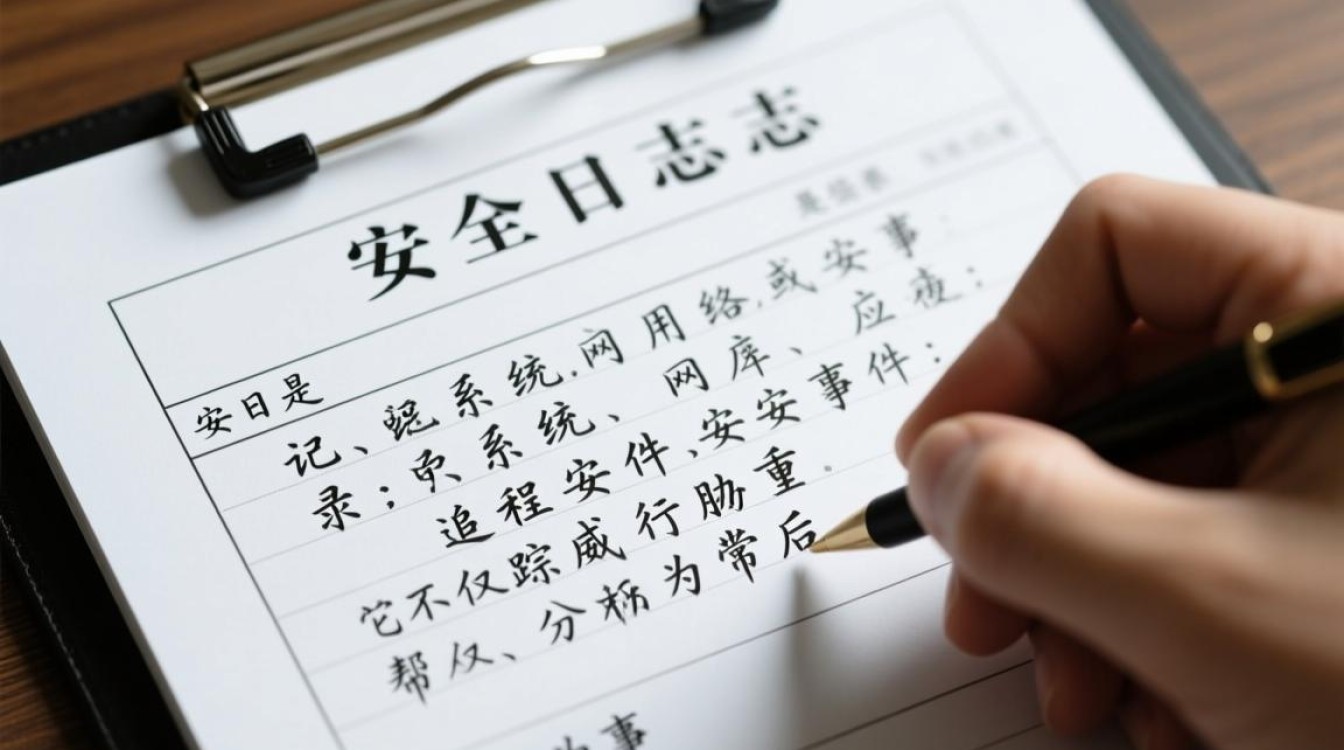 安全日志志
安日是
记、系统.网用络.或安事
录；系统、网库、应夜；
追程安件、安安事件：
它不仅踪威行胁重.
帮、分为常后
事